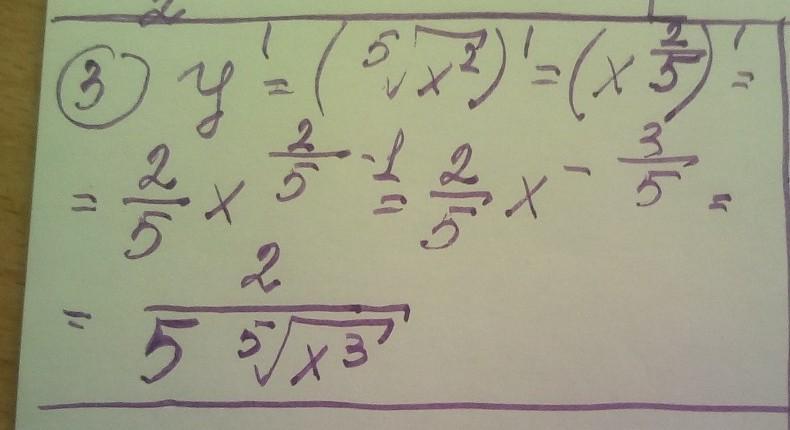 ③ y' = (⁵√x²)' = (x^(2/5))' =
= 2/5 x^(2/5 - 1) = 2/5 x^(-3/5) =
= 2/(5 ⁵√x³)